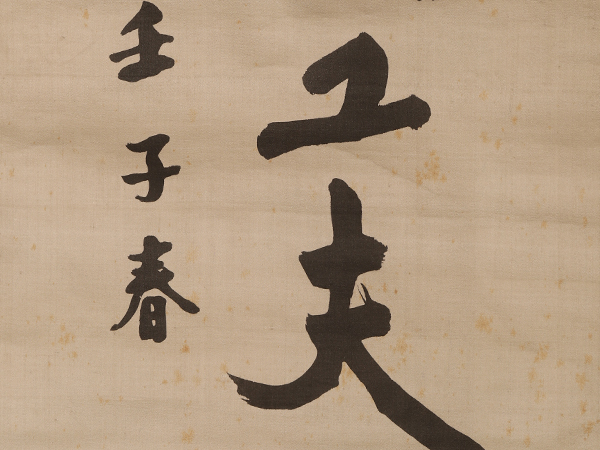 工夫
壬子春